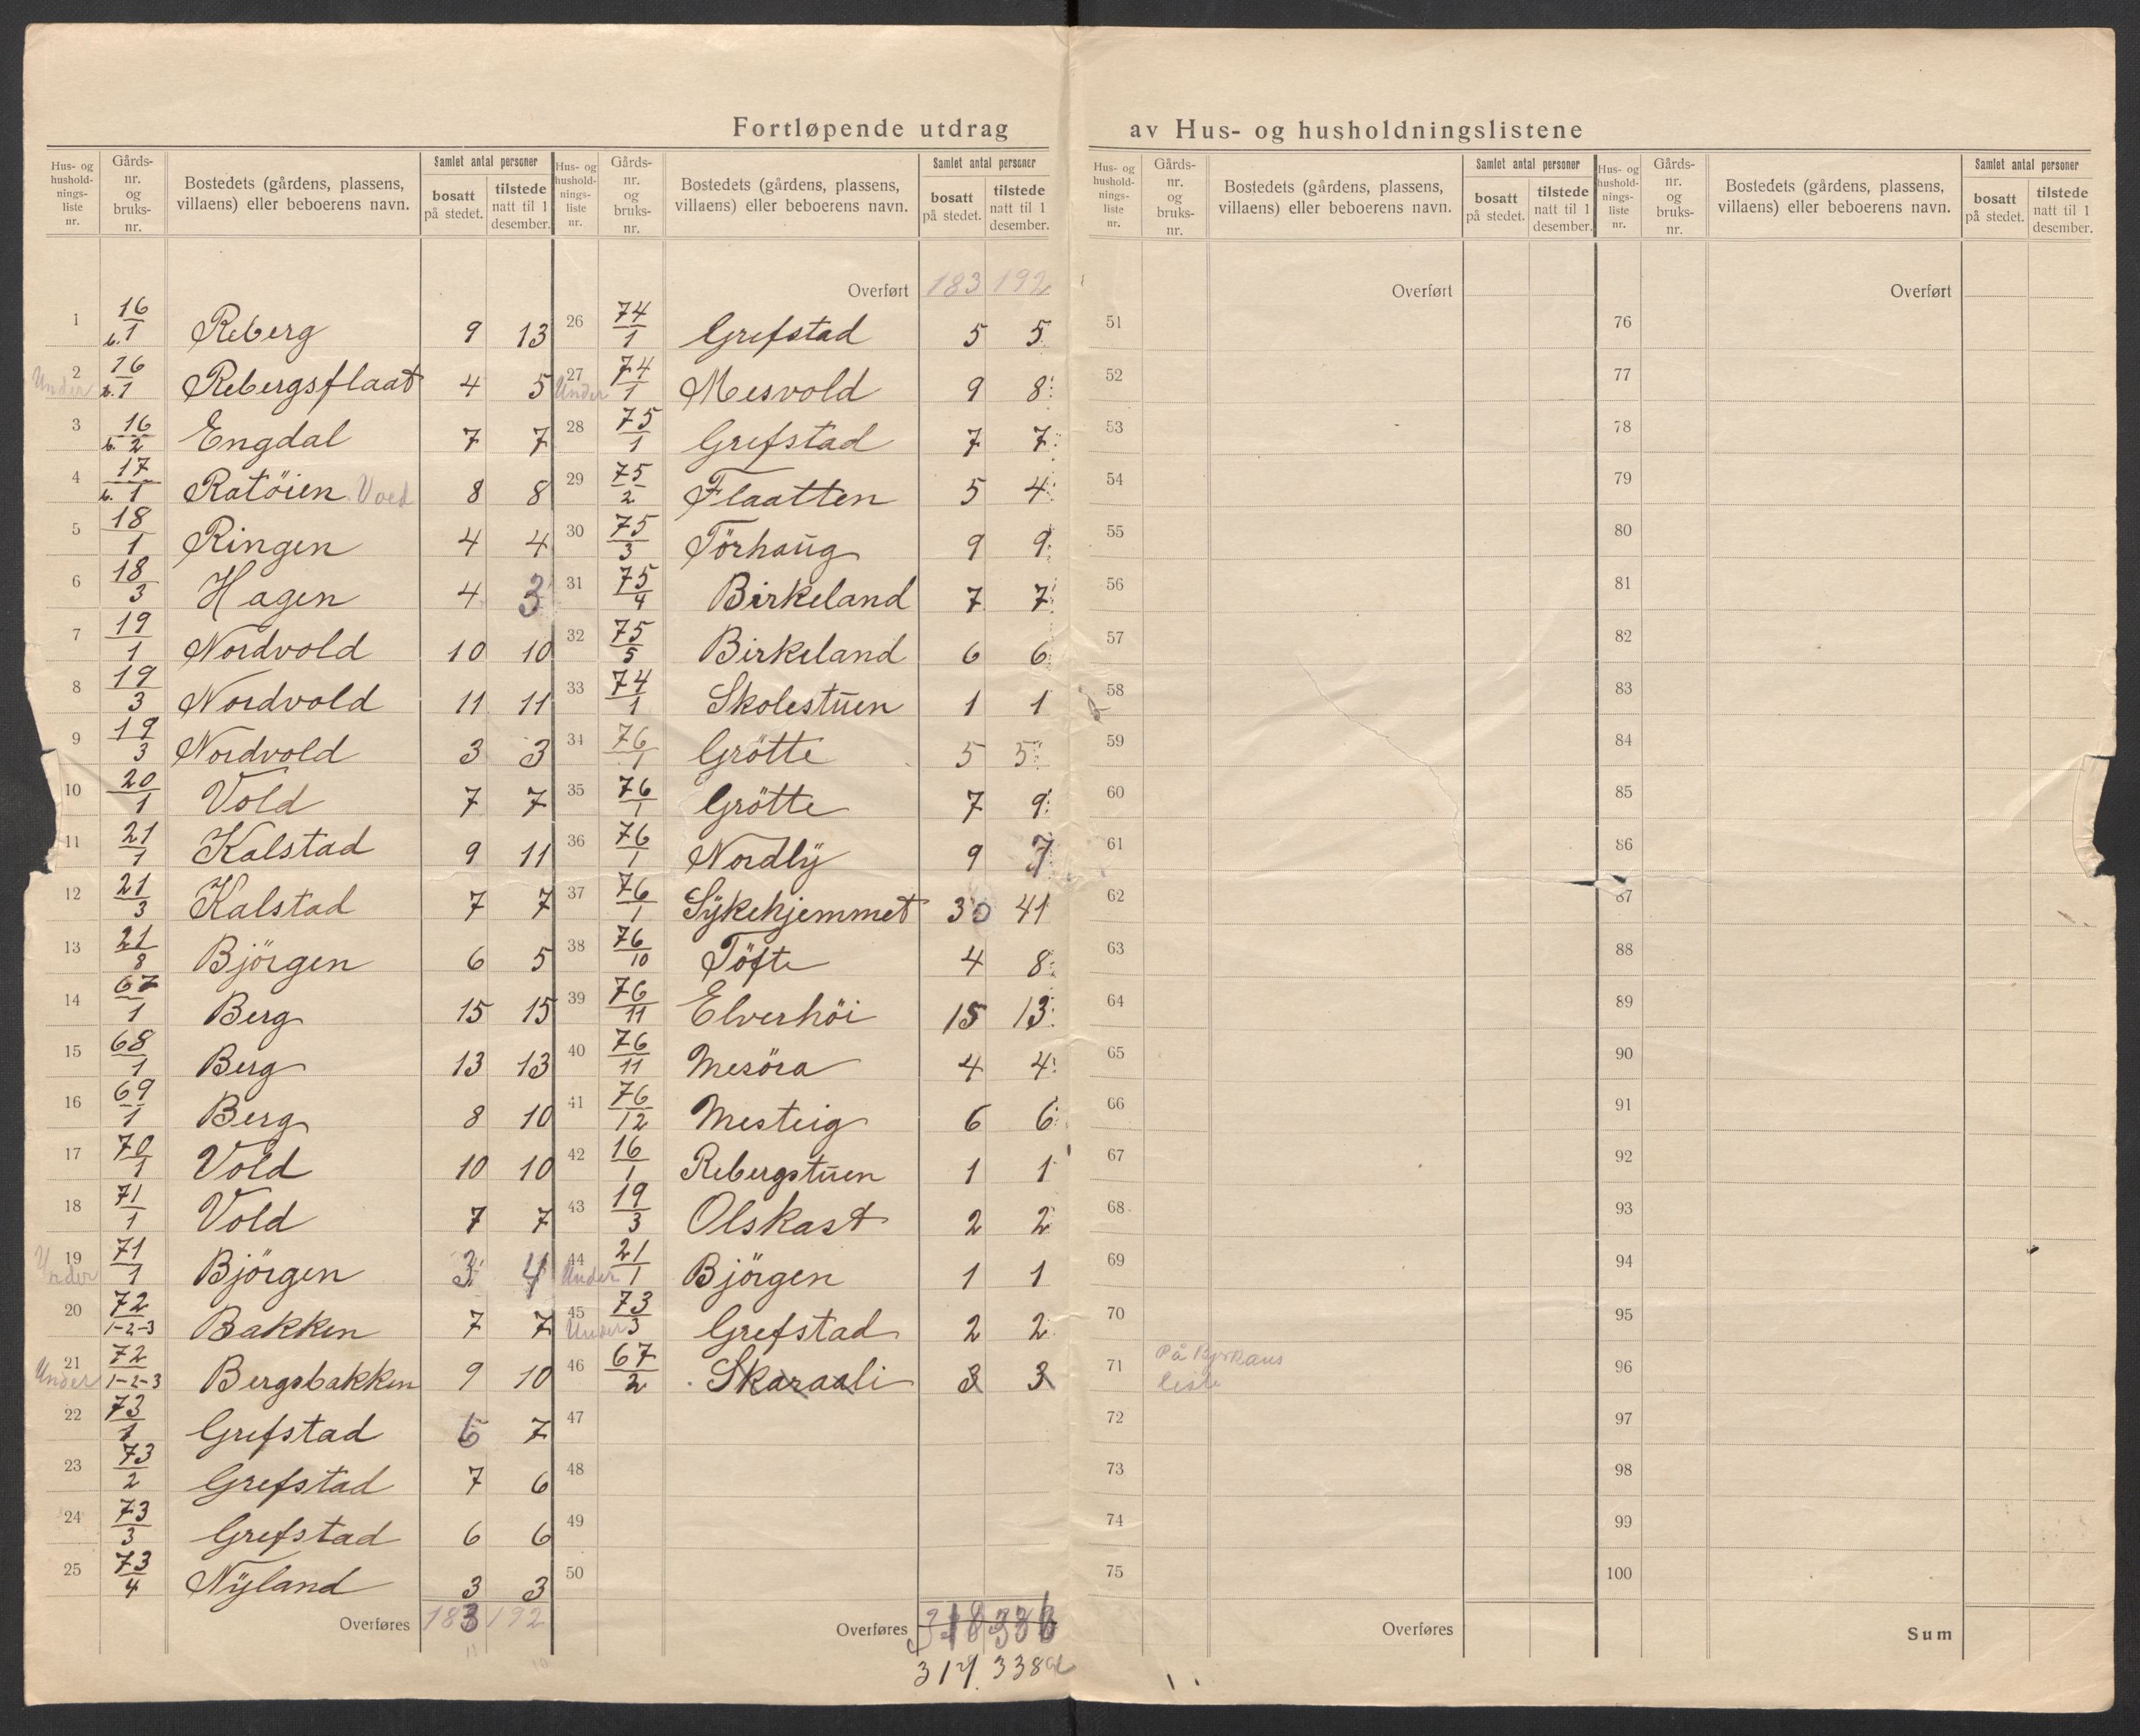 Fortløpende utdrag av Hus- og husholdningslistene
Hus- og husholdningsliste nr. | Gårds-nr. og bruks-nr. | Bostedets (gårdens, plassens, villaens) eller beboerens navn. | Samlet antal personer bosatt på stedet. | tilstede natt til 1 desember.
1 16/b.1 Reberg 9 13
2 Under 16/b.1 Rebergsflaat 4 5
3 16/b.2 Engdal 7 7
4 17/b.1 Ratöien 8 8
5 18/1 Ringen 4 4
6 18/3 Hagen 4 3
7 19/1 Nordvold 10 10
8 19/3 Nordvold 11 11
9 19/3 Nordvold 3 3
10 20/1 Vold 7 7
11 21/1 Kalstad 9 11
12 21/3 Kalstad 7 7
13 21/8 Björgen 6 5
14 67/1 Berg 15 15
15 68/1 Berg 13 13
16 69/1 Berg 8 10
17 70/1 Vold 10 10
18 71/1 Vold 7 7
19 Under 71/1 Björgen 3 4
20 72/1-2-3 Bakken 7 7
21 Under 72/1-2-3 Bergsbakken 9 10
22 73/1 Grefstad 6 7
23 73/2 Grefstad 7 6
24 73/3 Grefstad 6 6
25 73/4 Nÿland 3 3
Overføres 183 192
Hus- og husholdningsliste nr. | Gårds-nr. og bruks-nr. | Bostedets (gårdens, plassens, villaens) eller beboerens navn. | Samlet antal personer bosatt på stedet. | tilstede natt til 1 desember.
Overført 183 192
26 74/1 Grefstad 5 5
27 Under 74/1 Mesvold 9 8
28 75/1 Grefstad 7 7
29 75/2 Flaatten 5 4
30 75/3 Törhaug 9 9
31 75/4 Birkeland 7 7
32 75/5 Birkeland 6 6
33 74/1 Skolestuen 1 1
34 76/1 Grötte 5 5
35 76/1 Grötte 7 9
36 76/1 Nordlÿ 9 7
37 76/1 Sÿkehjemmet 30 41
38 76/10 Töfte 4 8
39 76/11 Elverhöi 15 13
40 76/11 Mesöra 4 4
41 76/12 Mesteig 6 6
42 16/1 Rebergstuen 1 1
43 19/3 Olskast 2 2
44 Under 21/1 Björgen 1 1
45 Under 73/3 Grefstad 2 2
46 67/2 Skaraali 3 3
47
48
49
50
Overføres 318 336
317. 338
Hus- og husholdningsliste nr. | Gårds-nr. og bruks-nr. | Bostedets (gårdens, plassens, villaens) eller beboerens navn. | Samlet antal personer bosatt på stedet. | tilstede natt til 1 desember.
Overført
51
52
53
54
55
56
57
58
59
60
61
62
63
64
65
66
67
68
69
70
71 På liste
72
73
74
75
Overføres
Hus- og husholdningsliste nr. | Gårds-nr. og bruks-nr. | Bostedets (gårdens, plassens, villaens) eller beboerens navn. | Samlet antal personer bosatt på stedet. | tilstede natt til 1 desember.
Overført
76
77
78
79
80
81
82
83
84
85
86
87
88
89
90
91
92
93
94
95
96
97
98
99
100
Sum